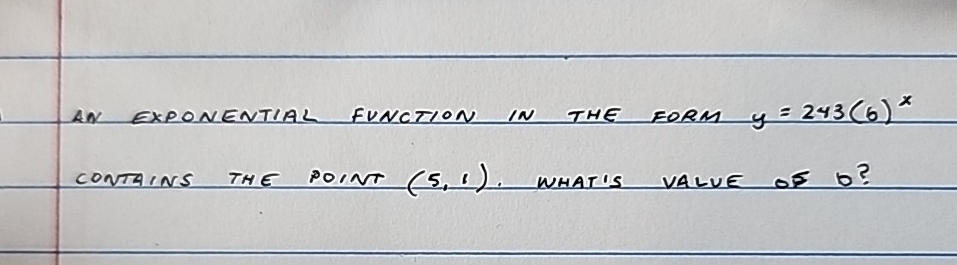 AN EXPONENTIAL FUNCTION IN THE FORM y = 243(b)^x
CONTAINS THE POINT (5, 1). WHAT'S VALUE OF b?